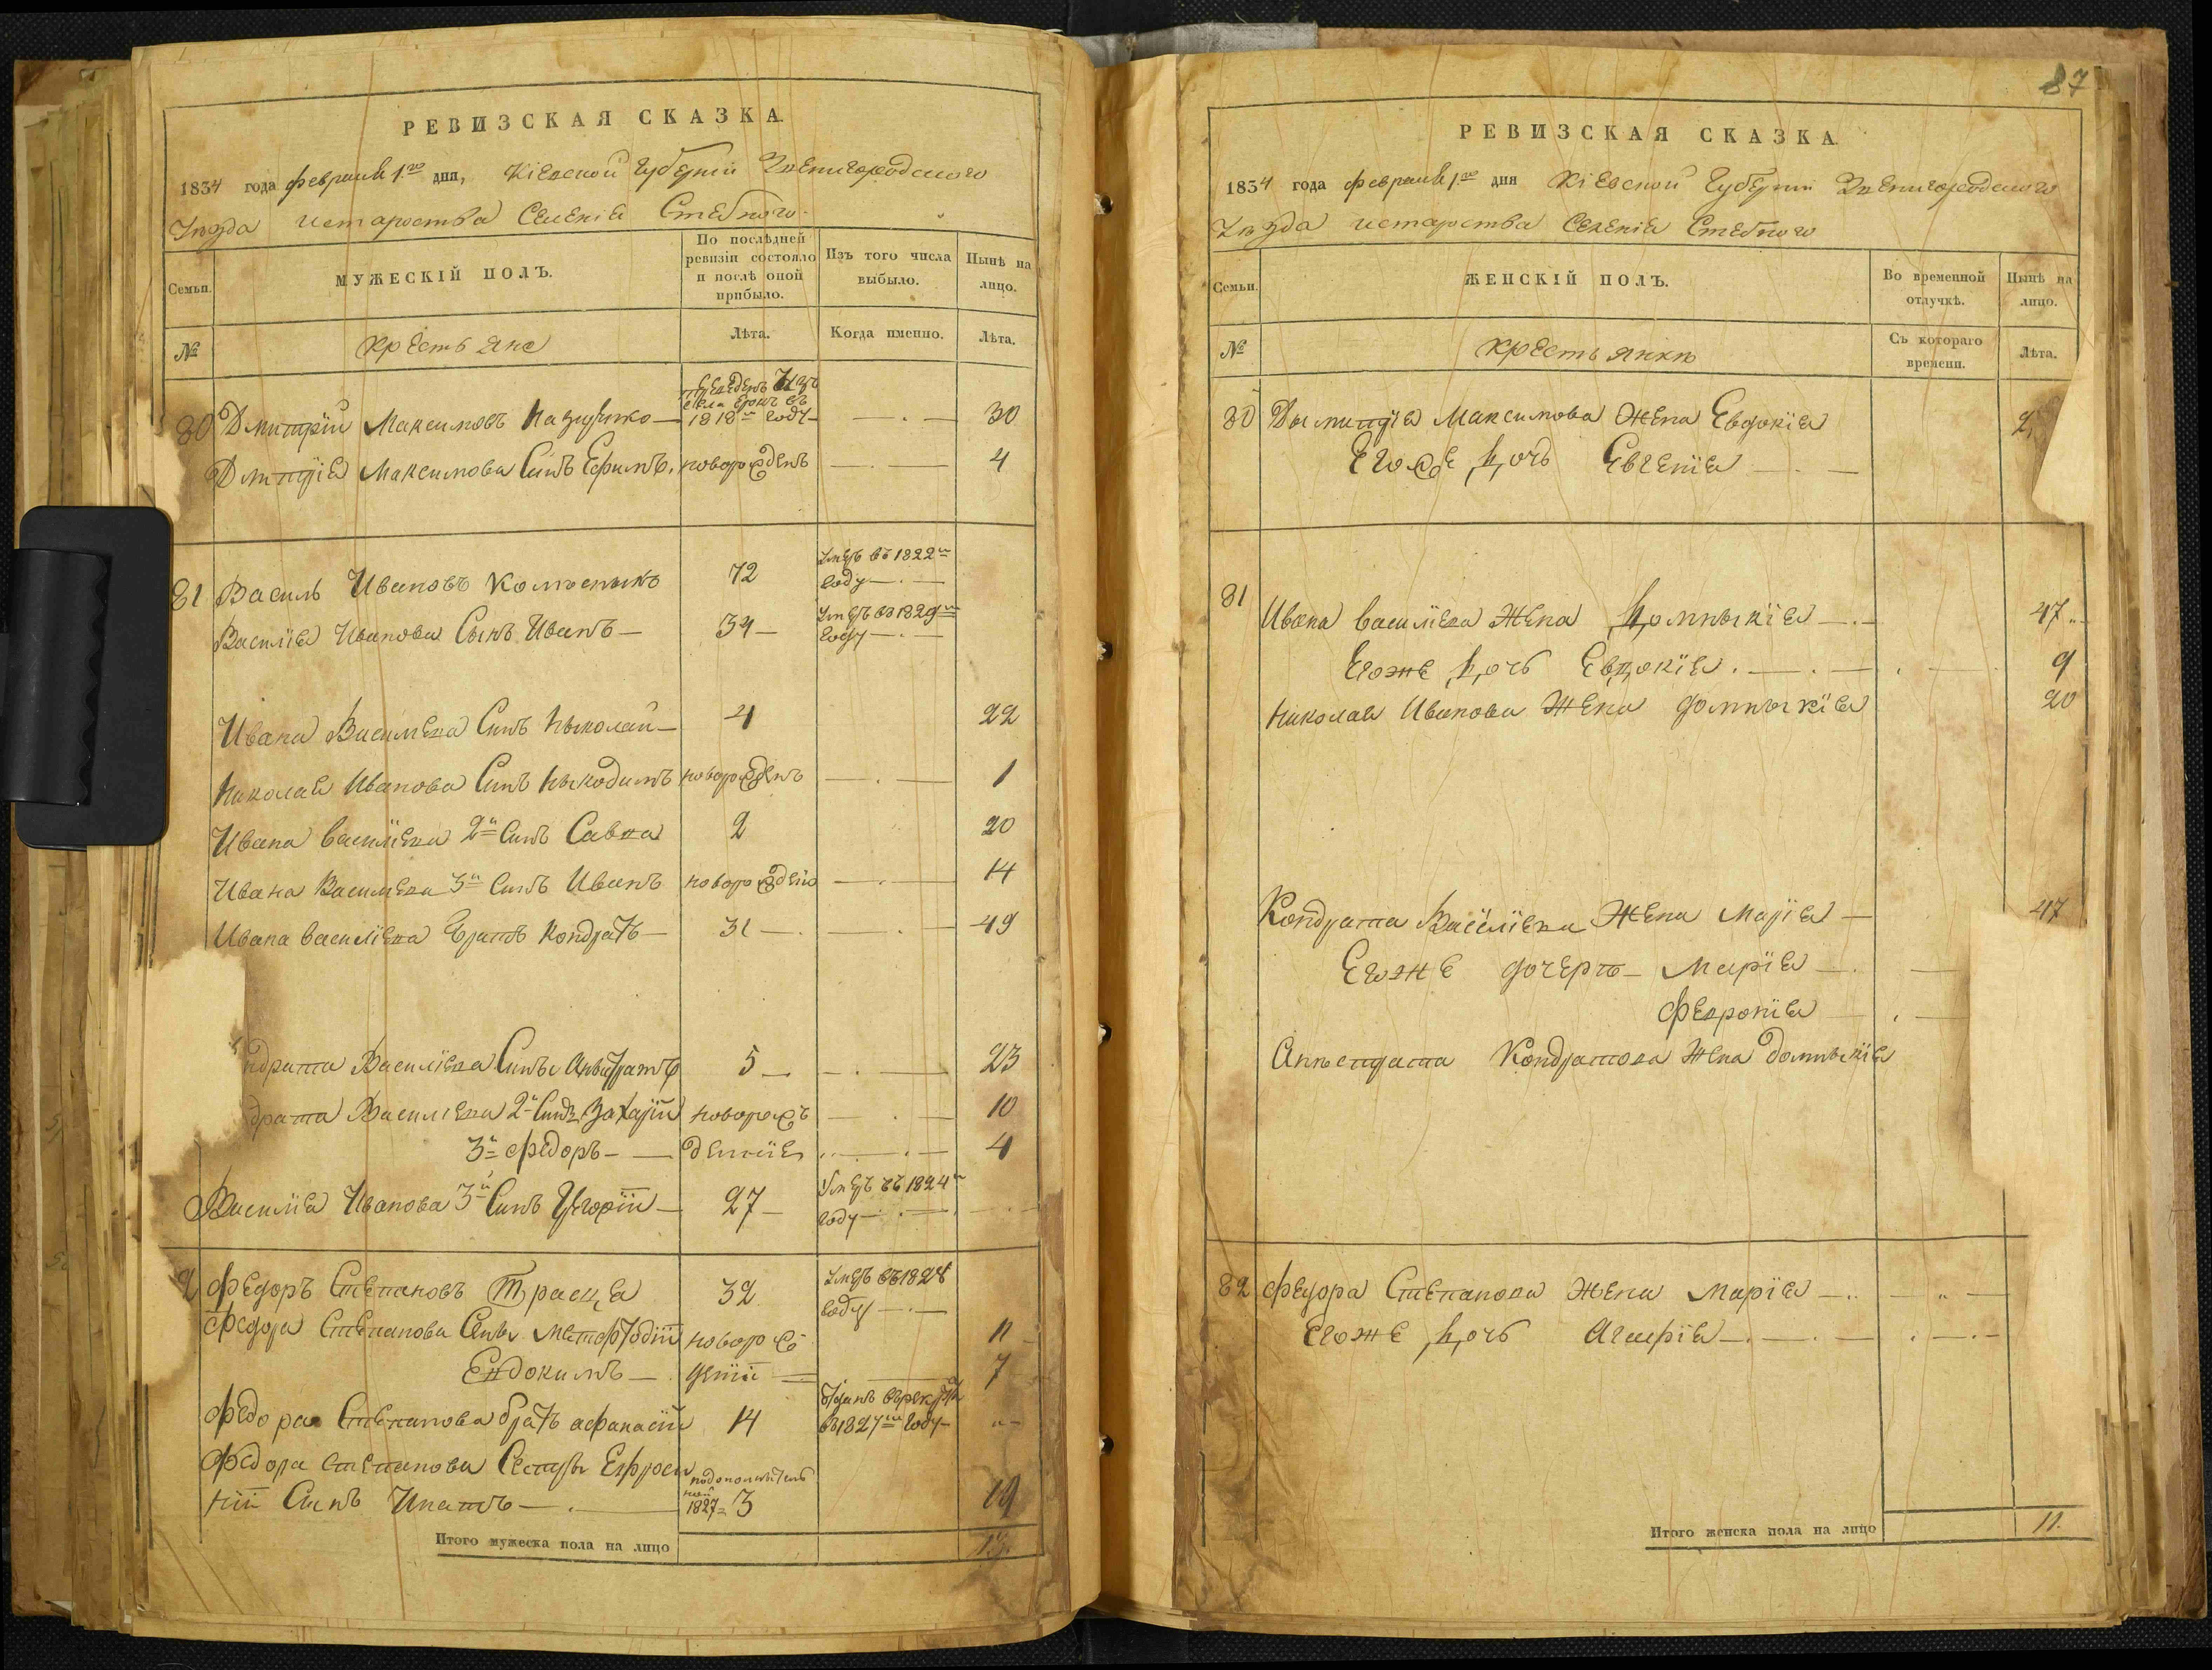 РЕВИЗСКАЯ СКАЗКА.
1834 года февраля 1го дня, Кіевской Губерніи Звенигородского
Уѣзда и староства Селенія Стебного
Семьи.
МУЖЕСКІЙ ПОЛЪ.
По послѣдней ревизіи состояло и послѣ оной прибыло.
Изъ того числа выбыло.
Нынѣ на лицо.
№
Крестьяне
Лѣта.
Когда именно.
Лѣта.
80 Дмитрій Максимовъ 1818го году 30
Дмитрія Максимова Синъ Ефимъ новорожденъ 4
81 Василь Ивановъ 72 Умеръ въ 1822м году
Василія Иванова Сынъ Иванъ 34 Умеръ въ 1829м году
Ивана Василіева Синъ Ныколай 4 22
Николая Иванова Синъ Ныкодимъ новорожденъ 1
Ивана Василіева 2й Синъ Савва 2 20
Ивана Василіева 3й Синъ Иванъ новорожденъ 14
Ивана Василіева Братъ Кондратъ 31 49
ндрата Василіева Синъ 5 23
драта Василіева 2й Синъ Захарій новорож 10
3й Федоръ денніе 4
Василія Иванова 3й Синъ Григорій 27 Умеръ въ 1824м году
2 Федоръ Степановъ 32 Умеръ въ 1828 году
Федора Степанова Сины Метфодій новорож 11
Евдокимъ денніи 7
Федора Степанова братъ Афанасій 14 Отданъ въ рекруты въ 1827м году
Федора Степанова Сестры Ефросиніи Синъ Игнатъ 1827 3 19
Итого мужеска пола на лицо
87
РЕВИЗСКАЯ СКАЗКА.
1834 года февраля 1го дня Кіевской Губерніи Звенигородского
Уѣзда и староства Селенія Стебного
Семьи.
ЖЕНСКІЙ ПОЛЪ.
Во временной отлучкѣ.
Нынѣ на лицо.
№
Крестьянки
Съ котораго времени.
Лѣта.
80 Дымитрія Максимова Жена Евдокія
Егоже Дочь Евгенія
81
Ивана Василіева Жена Домныкія 47
Егоже Дочь Евдокія 9
Николая Иванова Жена Домныкія 20
Кондрата Василіева Жена Марія 47
Егоже дочери Марія
Февронія
Кондратова Жена Домныкія
82 Федора Степанова Жена Марія
Егоже Дочь Агафія
Итого женска пола на лицо 11.